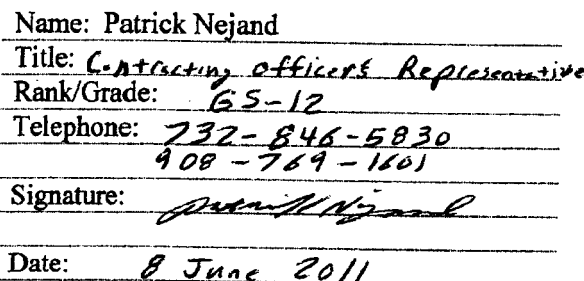 Name: Patrick Nejand
Title: Contracting officer's Representative
Rank/Grade: GS-12
Telephone: 732-846-5830
908-769-1601
Signature: Patrick Nejand
Date: 8 June 2011